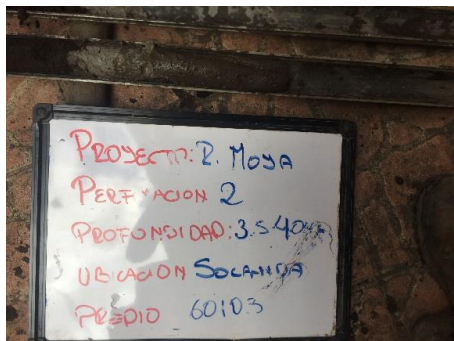 PROYECTO: R. MOYA
PERFORACION 2
PROFUNDIDAD: 3.5-4.0
UBICACION SOLANDA
PREDIO 60103